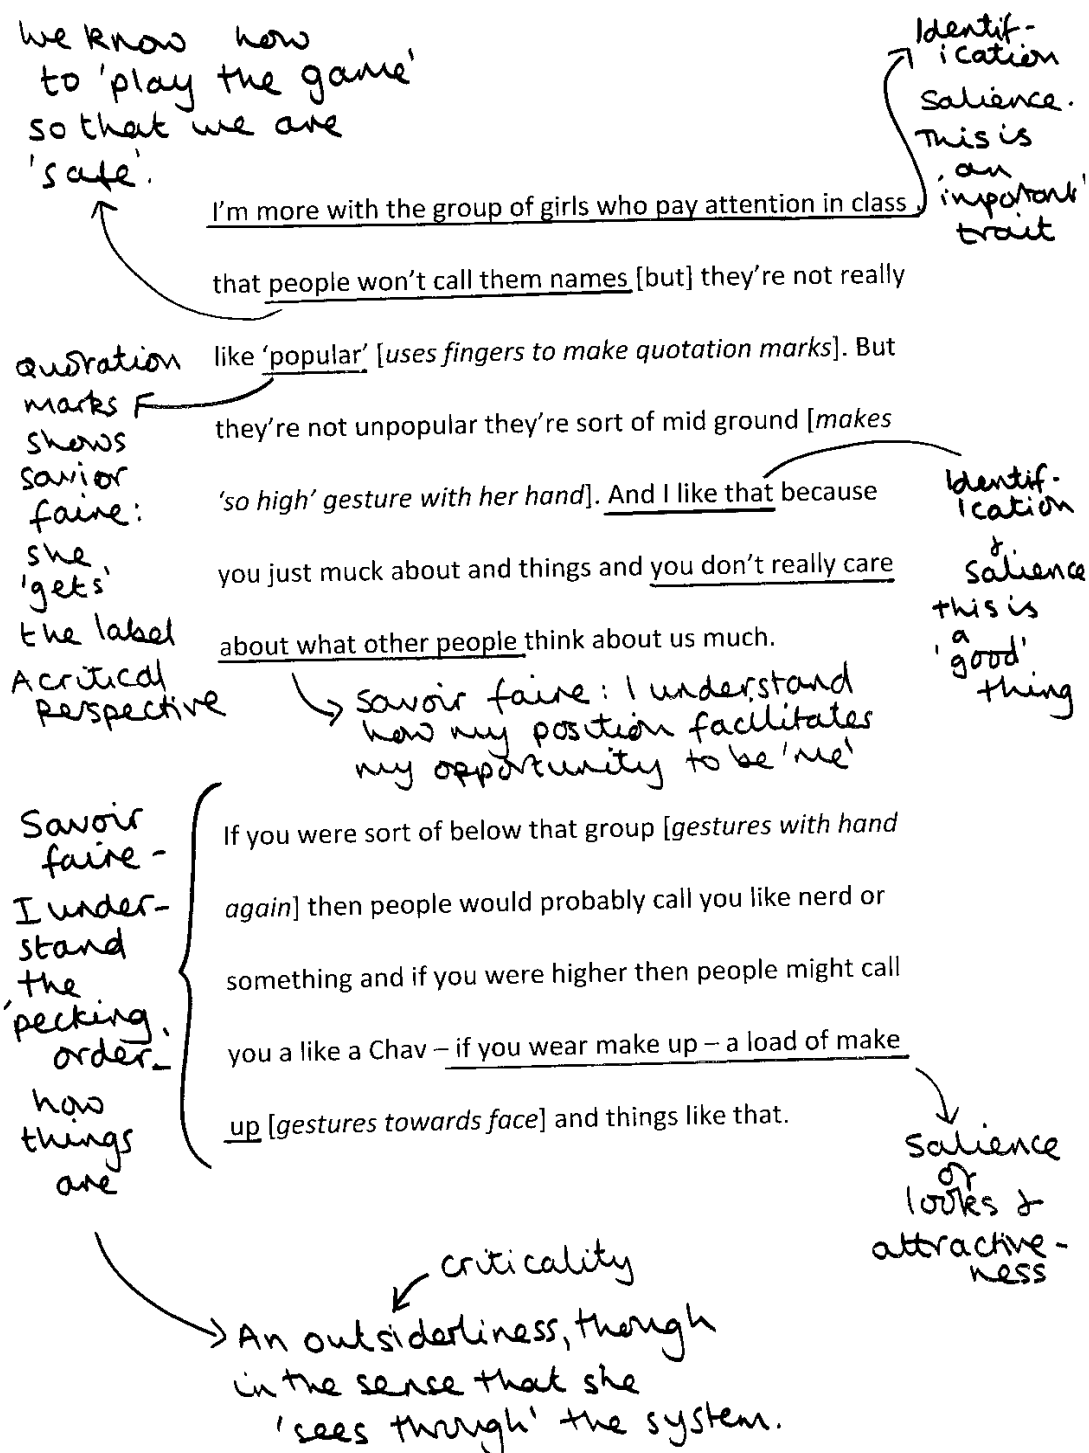 we know how
to 'play the game'
so that we are
'safe'.
Identif-
ication
salience.
This is
an
'important'
trait
I'm more with the group of girls who pay attention in class
that people won't call them names [but] they're not really
like 'popular' [uses fingers to make quotation marks]. But
they're not unpopular they're sort of mid ground [makes
'so high' gesture with her hand]. And I like that because
you just muck about and things and you don't really care
about what other people think about us much.
Quotation
marks
shows
savior
faire:
she
'gets'
the label
A critical
perspective
Identif-
ication
&
salience
this is
a
'good'
thing
savoir faire: I understand
how my position facilitates
my opportunity to be 'me'
Savoir
faire -
I under-
stand
the
'pecking
order' -
how
things
are
If you were sort of below that group [gestures with hand
again] then people would probably call you like nerd or
something and if you were higher then people might call
you a like a Chav – if you wear make up – a load of make
up [gestures towards face] and things like that.
Salience
of
looks &
attractive-
ness
criticality
An outsiderliness, though
in the sense that she
'sees through' the system.